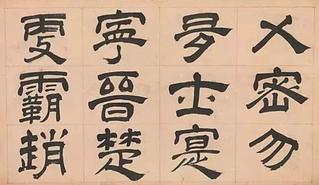 乂密勿
多士寔
寧晉楚
更霸趙